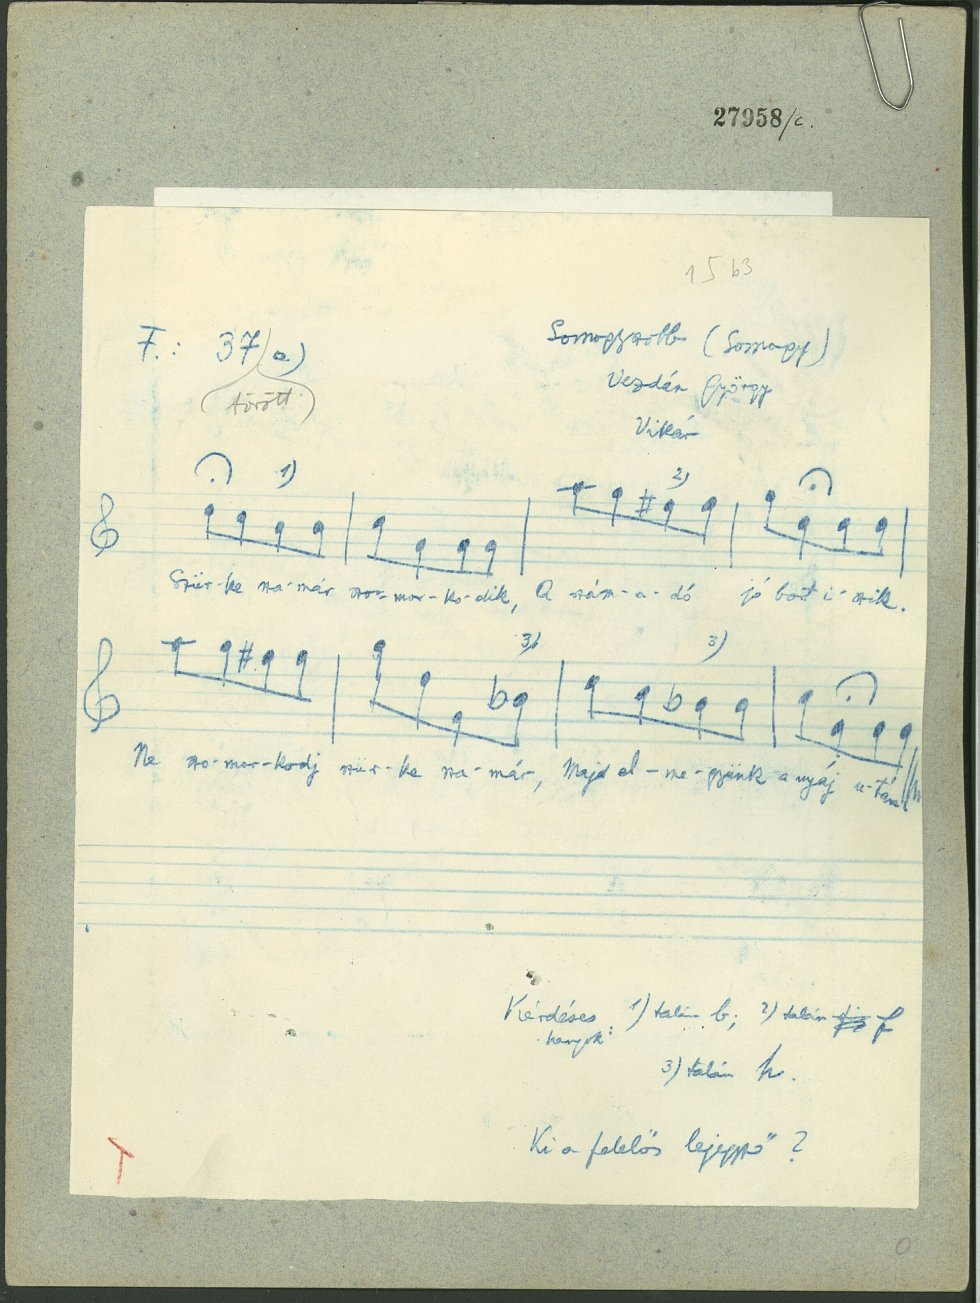 27958/c.
15 b3
F.: 37 a)
(törött)
Somogyszobb (Somogy)
Vezdán György
Vikár
1) 2)
Szür-ke sza-már szo-mor-ko-dik, A szám-a-dó jó bort i-szik.
3) 3)
Ne szo-mor-kodj szür-ke sza-már, Majd el-me-gyünk a nyáj u-tán
Kérdéses hangok: 1) talán b; 2) talán f
3) talán h.
Ki a felelős lejegyző?
T
0